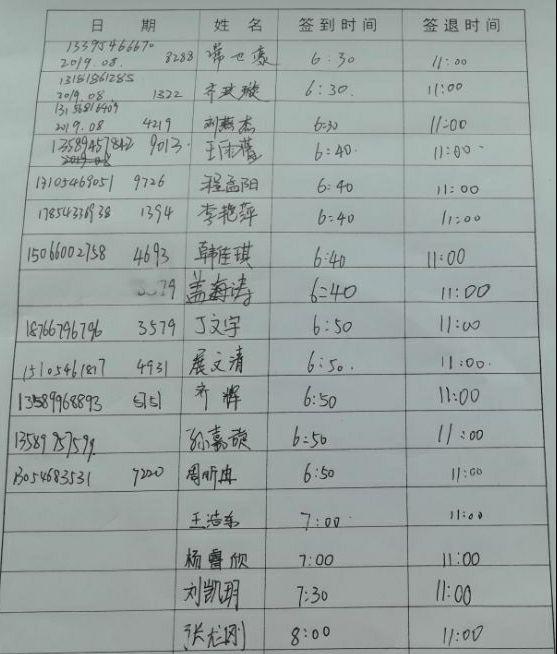 日 期 姓 名 签到时间 签退时间
13395466670
2019.08. 8288 常世豪 6:30 11:00
13181861285
2019.08 1322 齐 璇 6:30. 11:00
13156816409
2019.08 4219 刘 杰 6:30 11:00
13589457842 9013. 王 6:40. 11:00
2019.08
13105469051 9726 程孟阳 6:40 11:00
17854338938 1394 李艳萍 6:40 11:00
15066002758 4693 韩佳琪 6:40 11:00
79 盖海涛 6:40 11:00
18766796796 3579 丁文宇 6:50 11:00
15105461817 4931 展文清 6:50. 11:00.
13589968893 5151 齐辉 6:50 11:00
13589957599 孙嘉 6:50 11:00
13054683531 7220 周昕 6:50 11:00
王浩东 7:00 11:00
杨睿欣 7:00 11:00
刘凯玥 7:30 11:00
张龙刚 8:00 11:00